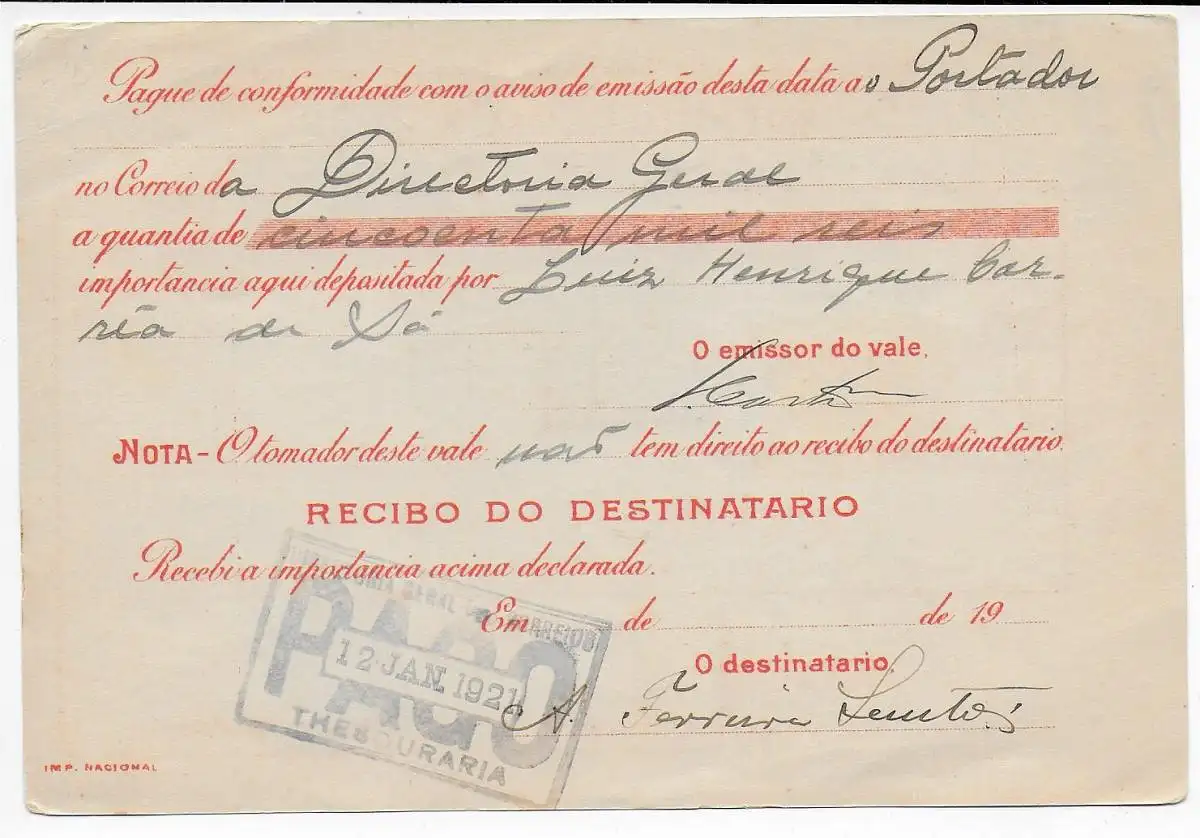 Pague de conformidade com o aviso de emissão desta data a o Portador
no Correio da Directoria Geral
a quantia de cincoenta mil reis
importancia aqui depositada por Luiz Henrique Cor-
rêa de Sá
O emissor do vale,
NOTA - O tomador deste vale não tem direito ao recibo do destinatario.
RECIBO DO DESTINATARIO
Recebi a importancia acima declarada.
Em de de 19
O destinatario,
A. Ferreira
DIRECTORIA GERAL DOS CORREIOS
PAGO
12 JAN. 1921
THESOURARIA
IMP. NACIONAL